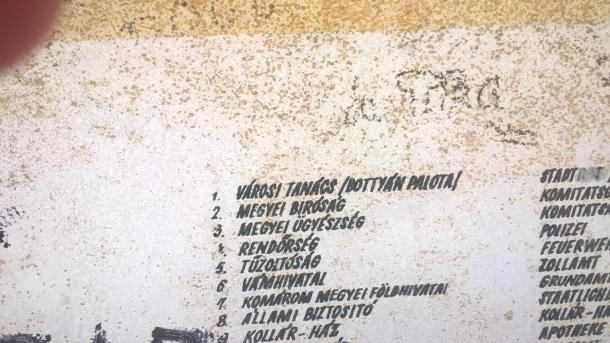 1. VÁROSI TANÁCS /BOTTYÁN PALOTA/
2. MEGYEI BIRÓSÁG
3. MEGYEI ÜGYÉSZSÉG
4. RENDŐRSÉG
5. TŰZOLTÓSÁG
6. VÁMHIVATAL
7. KOMÁROM MEGYEI FÖLDHIVATAL
8. ÁLLAMI BIZTOSITÓ
9. KOLLÁR-HÁZ
KOMITATS
KOMITATS
POLIZEI
FEUERWE
ZOLLAMT
GRUNDAM
STAATLICH
KOLLÁR-HA
APOTHEKE